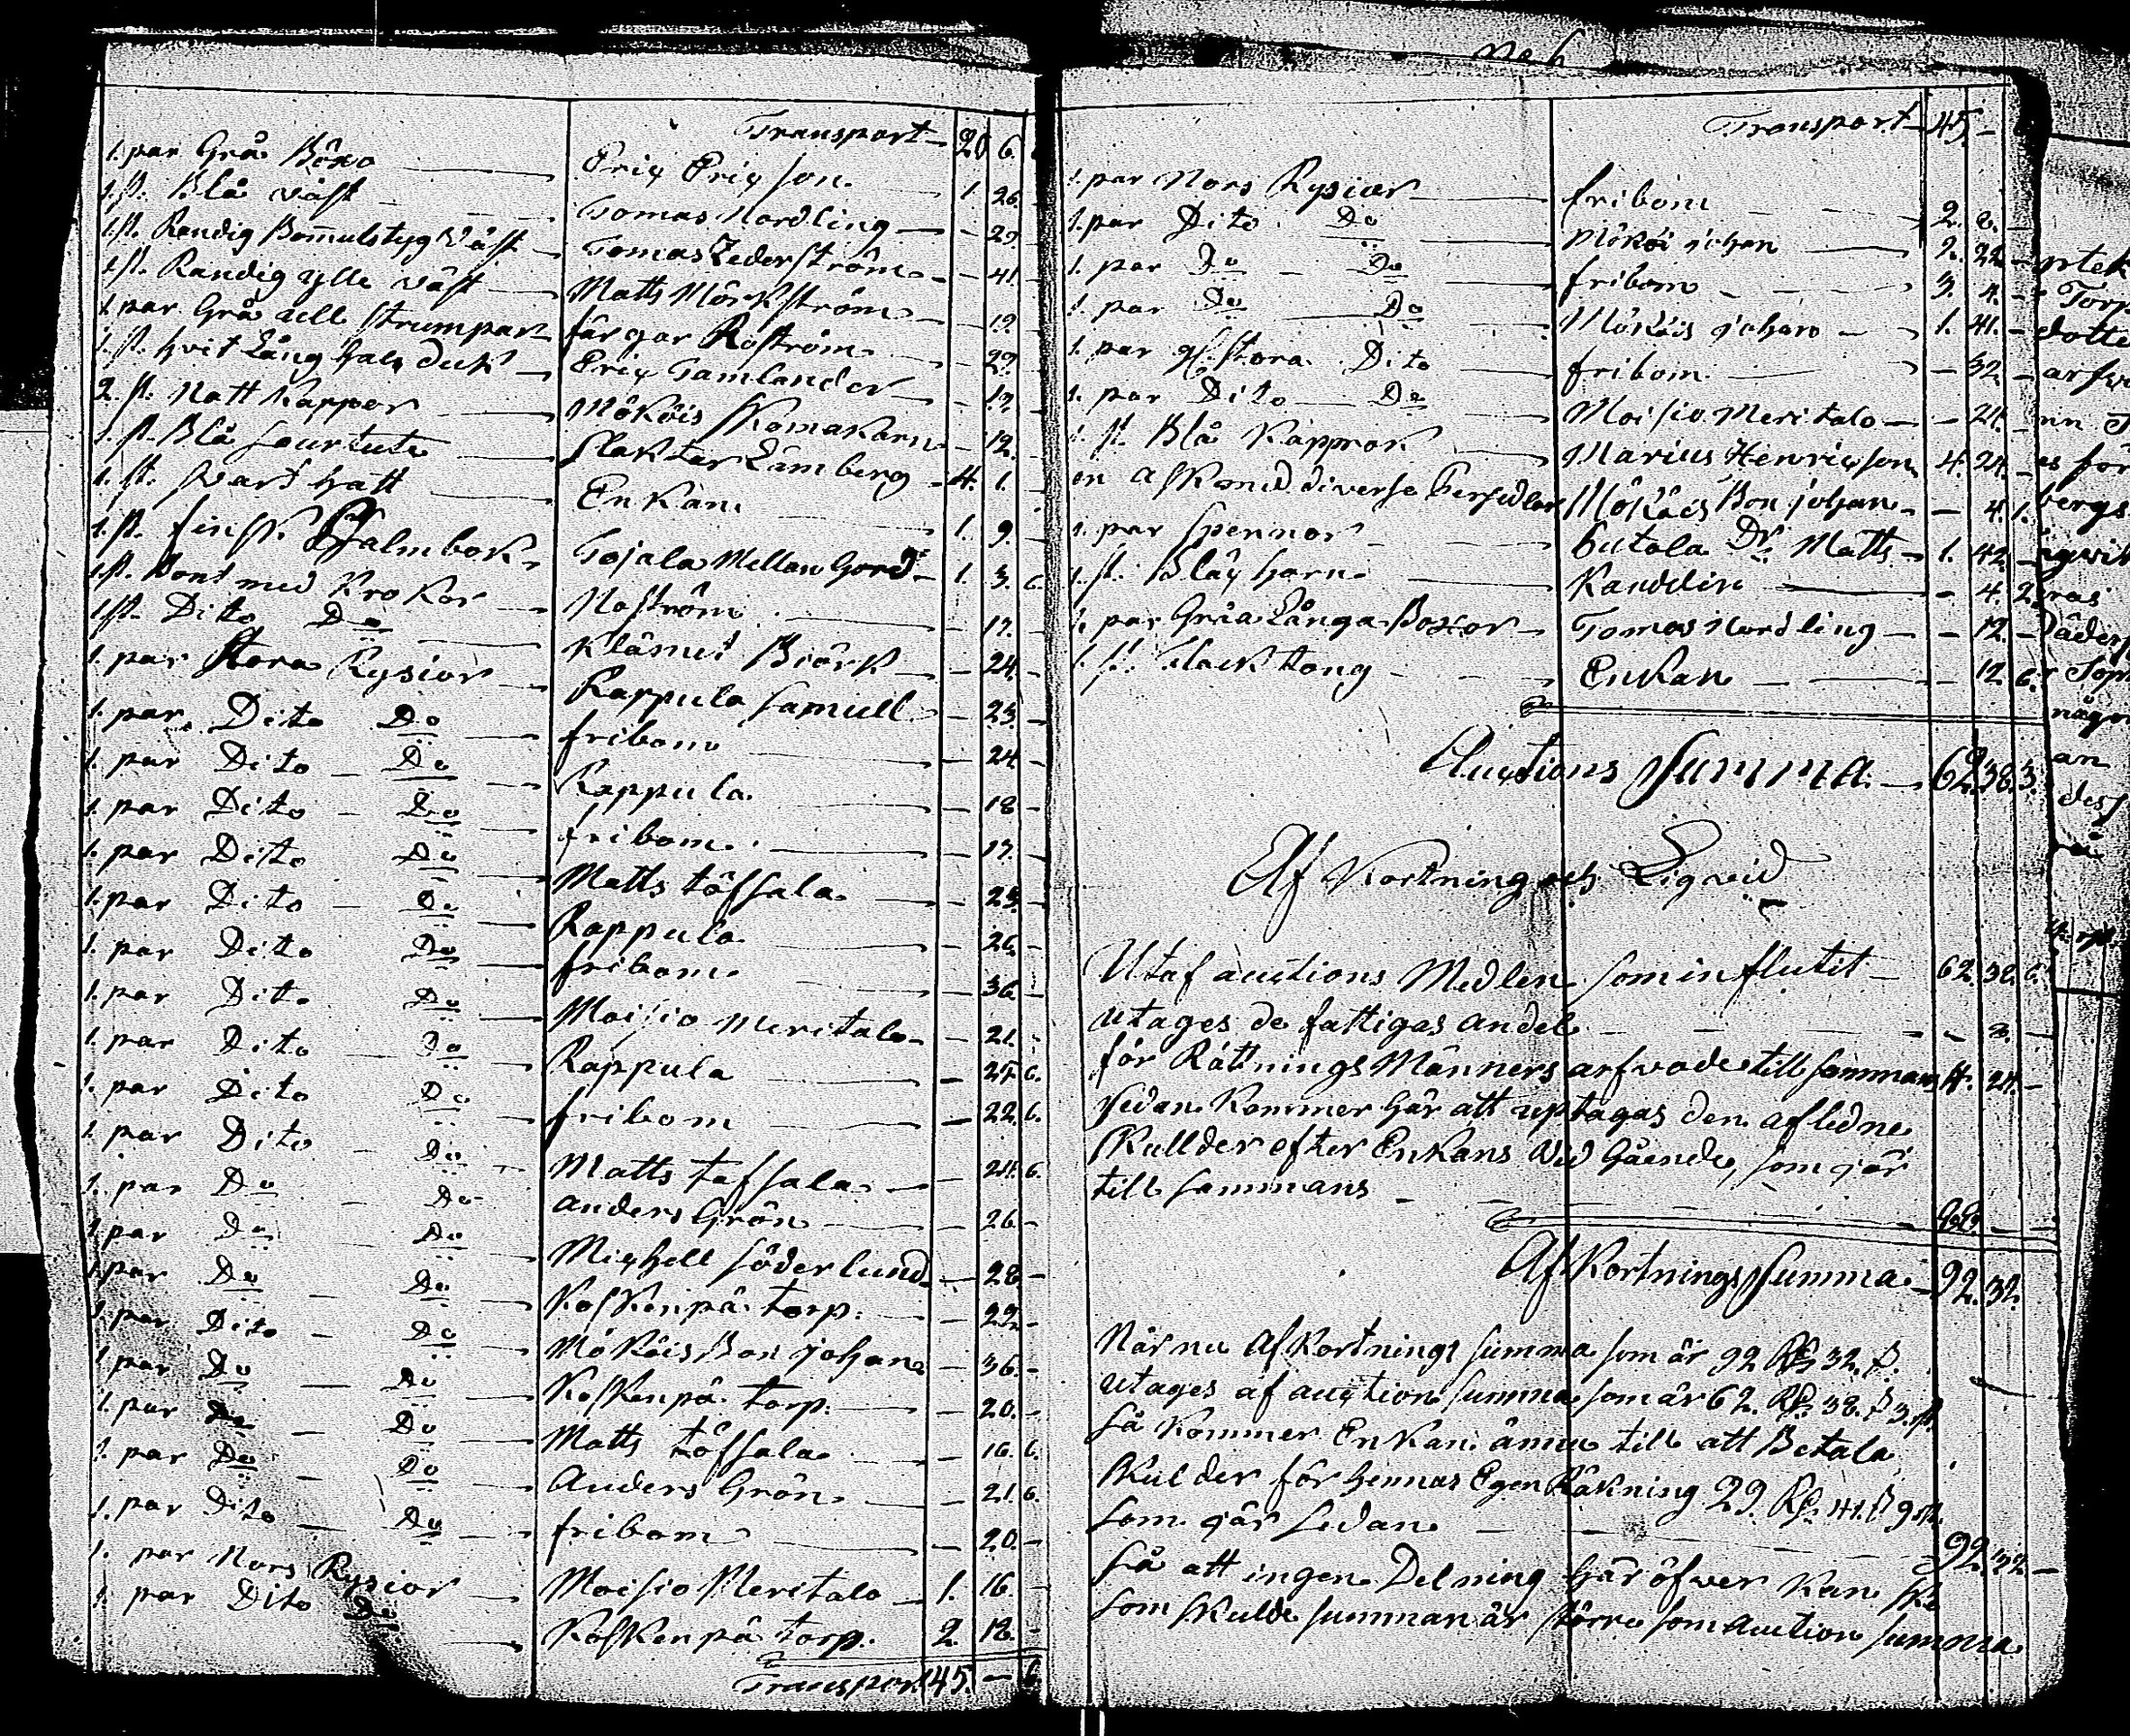 Transport 20 6.
1. par Grå Böxo Eric Ericson 1. 26.
1. st. Blå väst Tomas Nordling 29.
1 st. Randig Bomulstyg väst Tomas Zederström 41.
1 st. Randig ylle väst Matts Mörkström 19.
1 par Grå ull strumpar färgar Roström 29.
1. st. hvit Lång hals duk Eric Tamlander 12.
2. st. Natt Kappor Mökäis skomakarn 12.
1. st. Blå Sourtute slaktar Lämberg 4. 1.
1. st. svart hatt Enkan 1. 9.
1. st. finsk Psalmbok Tojala Mellan Gord 1. 3. 6.
1 st. Kont med Krokor Noström 17.
1 st. Dito Do Klämet Biörk 24.
1. par Stora Rysior Rappula Samuell 23.
1. par Dito Do fribom 24.
1. par Dito Do Rappula 18.
1. par Dito Do fribom 17.
1. par Dito Do Matts töfsala 23.
1. par Dito Do Rappula 26.
1. par Dito Do fribom 36.
1. par Dito Do Moisio Meritalo 21.
1. par Dito Do Rappula 25. 6.
1. par Dito Do fribom 22. 6.
1. par Dito Do Matts tofsala 24. 6.
1. par Do Do anders Grön 26.
1. par Do Do Michell söderlund 28.
1. par Do Do Koskenpä torp. 22.
1. par Dito Do Mökäis Bon johan 36.
1. par Do Do Koskenpä torp. 20.
1. par Do Do Matts töfsala 16. 6.
1. par Do Do Anders Grön 21. 6.
1. par Dito Do fribom 20.
1. par Nors Rysior Moisio Meritalo 1. 16.
1. par Dito Do Koskenpä torp. 2. 18.
Transport 45. 6.
No 6
Transport 45.
1. par Nors Rysior fribom 2. 8.
1. par Dito Do Mökäi johan 2. 22.
1. par Do Do fribom 3. 4.
1. par Do Do Mökäis johan 1. 41.
1. par gl. stora Dito fribom 32.
1. par Dito Do Moisio Meritalo 24.
1. st. Blå Kapprok Marius Henricson 4. 24.
en ask med diverse Persedlar Mökäis Bon johan 4. 1.
1. par spennor butala Dr. Matts 1. 42.
1. st. Bläck horn Kandelin 4. 2.
1. par Gråa Långa Boxor Tomas Nordling 12.
1. st. Flack tong Enkan 12. 6.
Auctions Summa 62. 38. 3.
Af Kortning och Liqvid
Utaf auctions Medlen som influtit 62. 38. 3.
Utages de fattigas andel 8.
för Rättnings Männers arfvode tillsammans 4. 24.
sedan kommer här att uptagas den afledne
skullder efter Enkans Vid Gående, som gör
till sammans
Af Kortnings summa 92. 32.
När nu Af Kortnings summa som är 92 Rd. 32. s.
utages af auction summa som är 62. Rd. 38. s 3. rst
Så kommer Enkan ännu till att Betala
skulder för hennas Egen Räkning 29. Rd. 41. s 9 rst.
som gör sedan 92. 32
Så att ingen Delning här öfwer kan ske
som skulde summan är större som auction summa
ptek
Torp
dotte
arfw
es för
bergs
någo
an